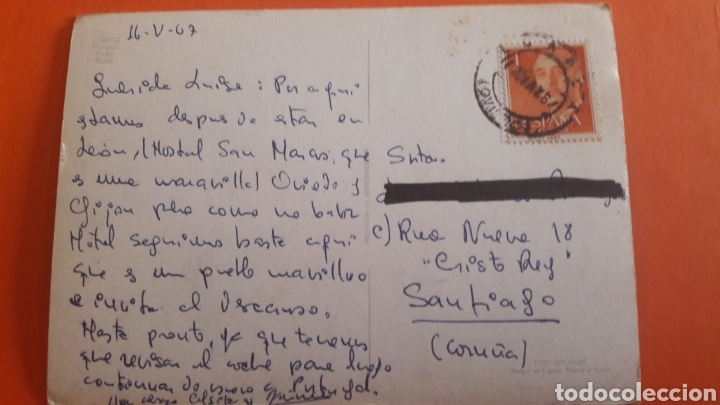 16-V-67
Querida Luisa: Por aquí
estamos después de estar en
León, (Hostal San Marcos, que
es una maravilla) Oviedo y
Gijón pero como no había
Hotel seguimos hasta aquí
que es un pueblo maravilloso
e invita al descanso.
Hasta pronto, ya que tenemos
que revisar el coche para luego
continuar de nuevo a Portugal.
Un
1
ESPAÑA
Srta.
c) Rua Nueva 18
"Cristo Rey"
Santiago
(Coruña)
todocoleccion